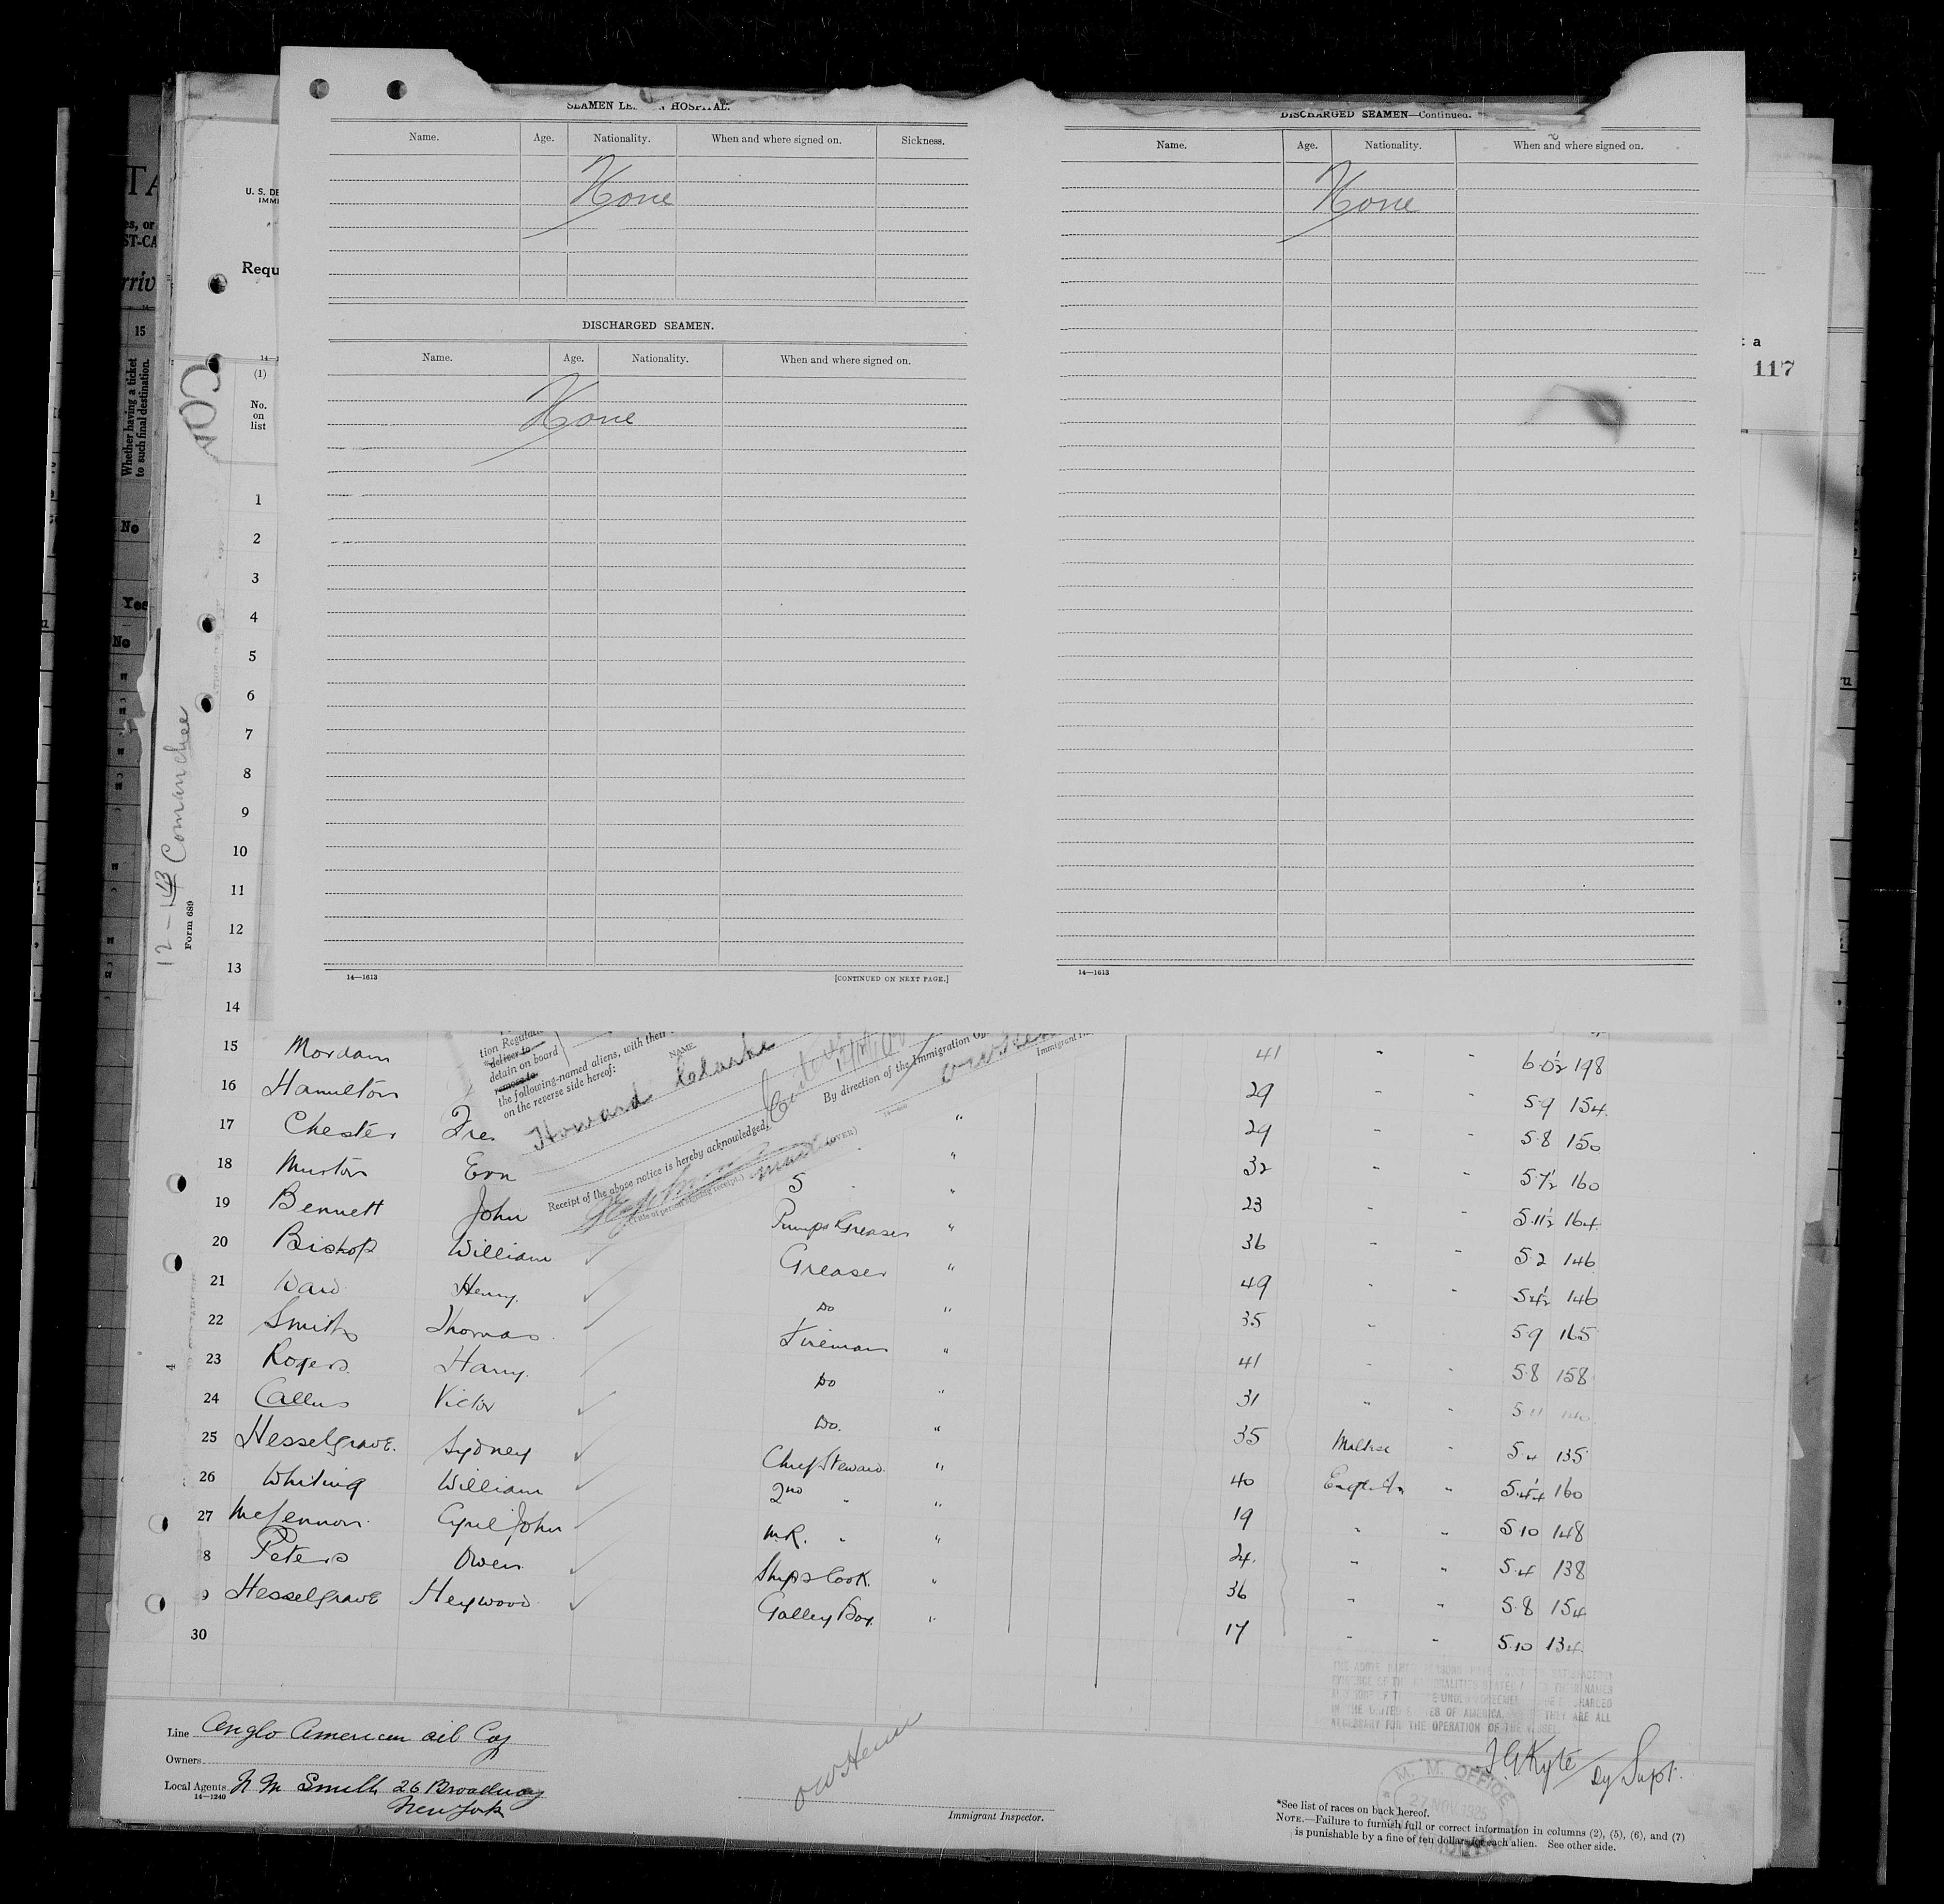 SEAMEN HOSPITAL.
Name. Age. Nationality. When and where signed on. Sickness.
None
DISCHARGED SEAMEN.
Name. Age. Nationality. When and where signed on.
None
14—1613 [CONTINUED ON NEXT PAGE.]
DISCHARGED SEAMEN—Continued.
Name. Age. Nationality. When and where signed on.
None
14—1613
U. S. DE
IMMI
Requ
(1)
No.
on
list
15
Whether having a ticket
to such final destination.
No
Yes
No
: a
117
12 — 143 Comanchee
Form 689
1
2
3
4
5
6
7
8
9
10
11
12
13
14
tion Regulat
deliver to
detain on board
remove to
the following-named aliens, with their
on the reverse side hereof:
NAME.
Howard Clarke
By direction of the Immigration
Immigrant
Receipt of the above notice is hereby acknowledged,
(Title of person signing receipt.) (OVER)
Master
15 Mordain 41 " " 6·0½ 198
16 Hamilton 29 " " 5·9 154
17 Chester Fre 29 " " 5·8 150
18 Murton Ern 32 " " 5·7½ 160
19 Bennett John 23 " " 5·11½ 164
20 Bishop William Pumps Greaser " 36 " " 5·2 146
21 Ward Henry Greaser " 49 " " 5·4½ 146
22 Smith Thomas Do " 35 " " 5·9 165
23 Rogers Harry Fireman " 41 " " 5·8 158
24 Callus Victor Do " 31 " " 5·11
25 Hesselgrave Sydney Do. " 35 Maltese " 5·4 135
26 Whiting William Chief Steward " 40 English " 5·4¼ 160
27 McLennon Cyril John 2nd " " 19 " " 5·10 148
8 Peters Owen M.R. " " 24 " " 5·4 138
9 Hesselgrave Heywood Ships Cook " 36 " " 5·8 154
30 Galley Boy " 17 " " 5·10 134
THE ABOVE
IN THE UNITED STATES OF AMERICA. THEY ARE ALL
NECESSARY FOR THE OPERATION OF THE VESSEL.
Line Anglo American Oil Coy
Owners
Local Agents N M Smith 26 Broadway
New York
14—1240
O W Heim
Immigrant Inspector.
J G Kyte Dy Supt.
M. M. OFFICE
27 NOV 1925
*See list of races on back hereof.
NOTE.—Failure to furnish full or correct information in columns (2), (5), (6), and (7)
is punishable by a fine of ten dollars for each alien. See other side.